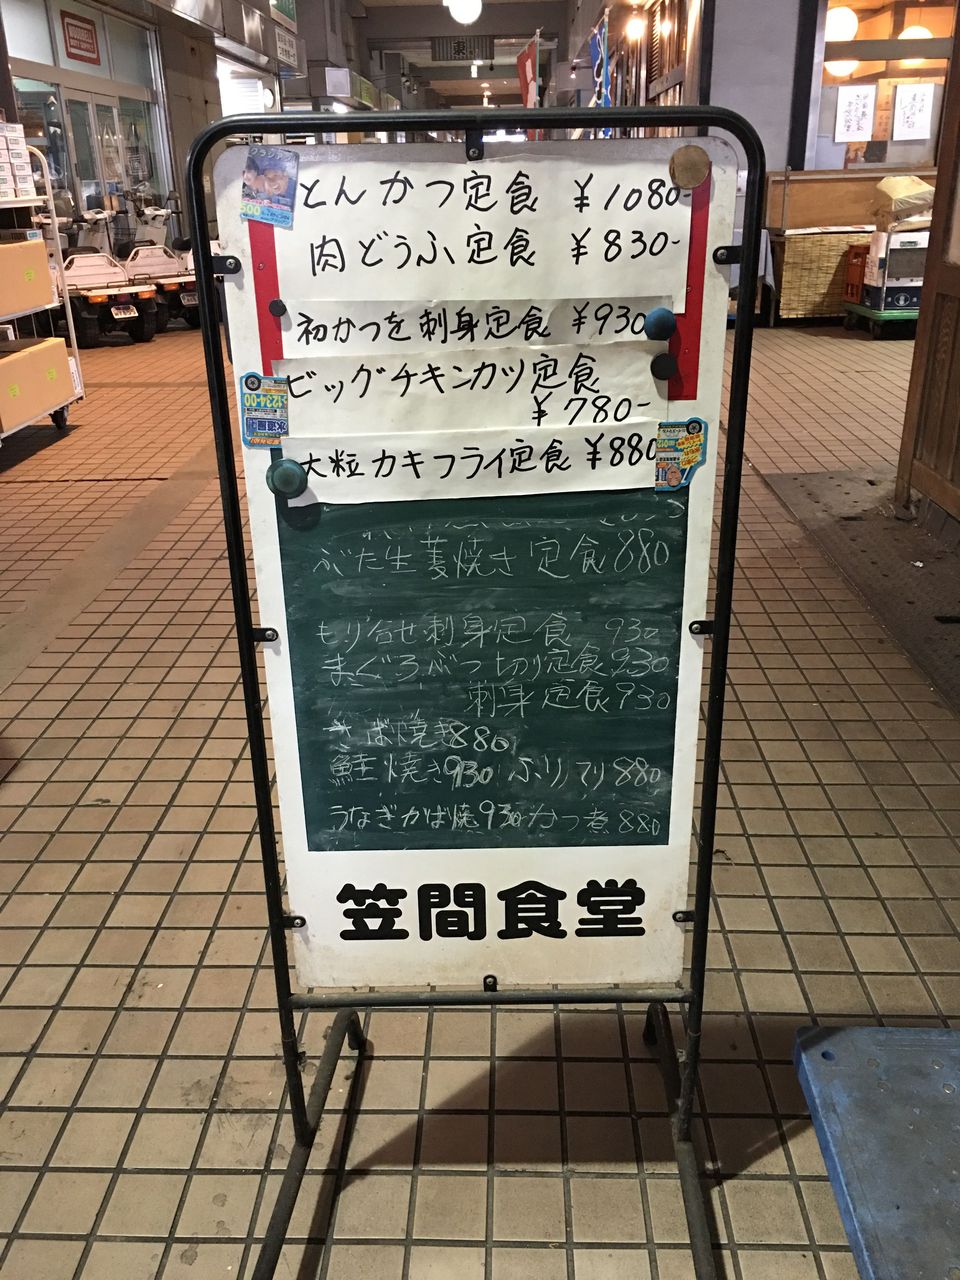 東
とんかつ定食 ¥1080-
肉どうふ定食 ¥830-
初かつを刺身定食 ¥930
ビッグチキンカツ定食
¥780-
大粒カキフライ定食 ¥880
ぶた生姜焼き定食880
もり合せ刺身定食 930
まぐろぶつ切り定食930
刺身定食930
さば焼き880
鮭焼き930 ぶりてり880
うなぎかば焼930 かつ煮880
笠間食堂